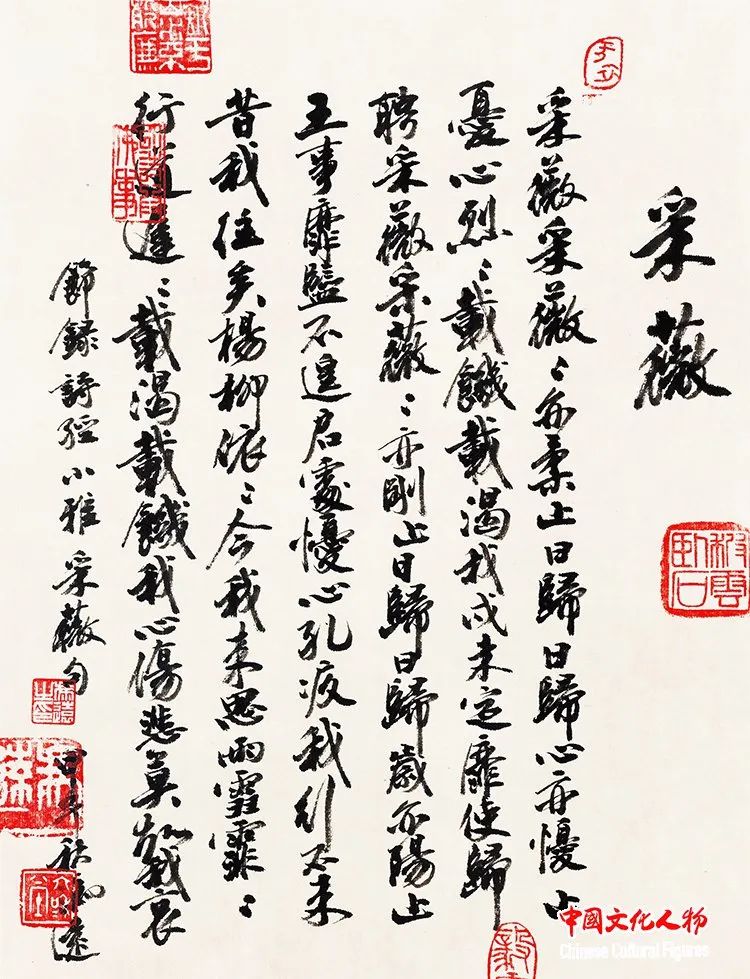 采薇
采薇采薇〻亦柔止曰歸曰歸心亦懮止
憂心烈〻載饑載渴我戍未定靡使歸
聘采薇采薇〻亦剛止曰歸曰歸歲亦陽止
王事靡盬不遑启處懮心孔疚我行不来
昔我往矣楊柳依〻今我来思雨雪霏〻
行道遲〻載渴載饑我心傷悲莫知我哀
節錄詩經小雅采薇句
甲午秋
披雲卧石
中國文化人物
Chinese Cultural Figures